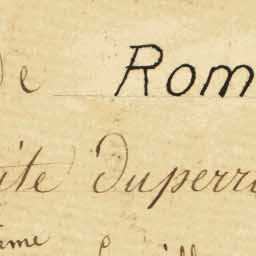 de Rom
ite duperr
ème